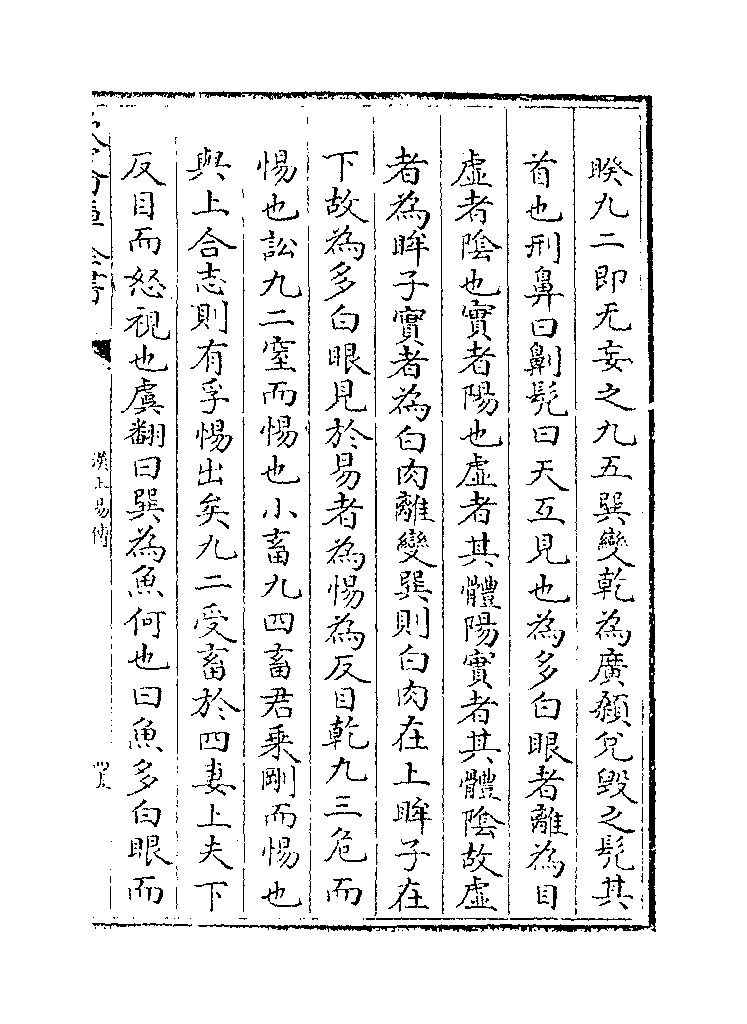 睽九二即无妄之九五巽變乾為廣顙兌毀之髡其
首也刑鼻曰劓髡曰天互見也為多白眼者離為目
虛者陰也實者陽也虛者其體陽實者其體陰故虛
者為眸子實者為白肉離變巽則白肉在上眸子在
下故為多白眼見於易者為惕為反目乾九三危而
惕也訟九二窒而惕也小畜九四畜君乘剛而惕也
與上合志則有孚惕出矣九二受畜於四妻上夫下
反目而怒視也虞翻曰巽為魚何也曰魚多白眼而
漢上易傳